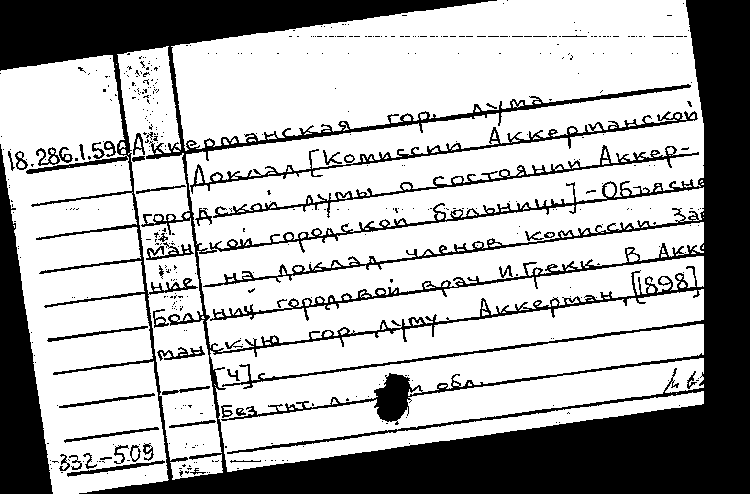 Аккерманская гор. дума.
18.286.1.596
Доклад [Комиссии Аккерманской
городской думы о состоянии Аккер-
манской городской больницы] - Объясне
ние на доклад членов комиссии. Зав
Больниц. городовой врач И. Грекк. В Акке
манскую гор. думу. Аккерман, [1898]
[4] с.
Без тит. л. и обл.
332-509